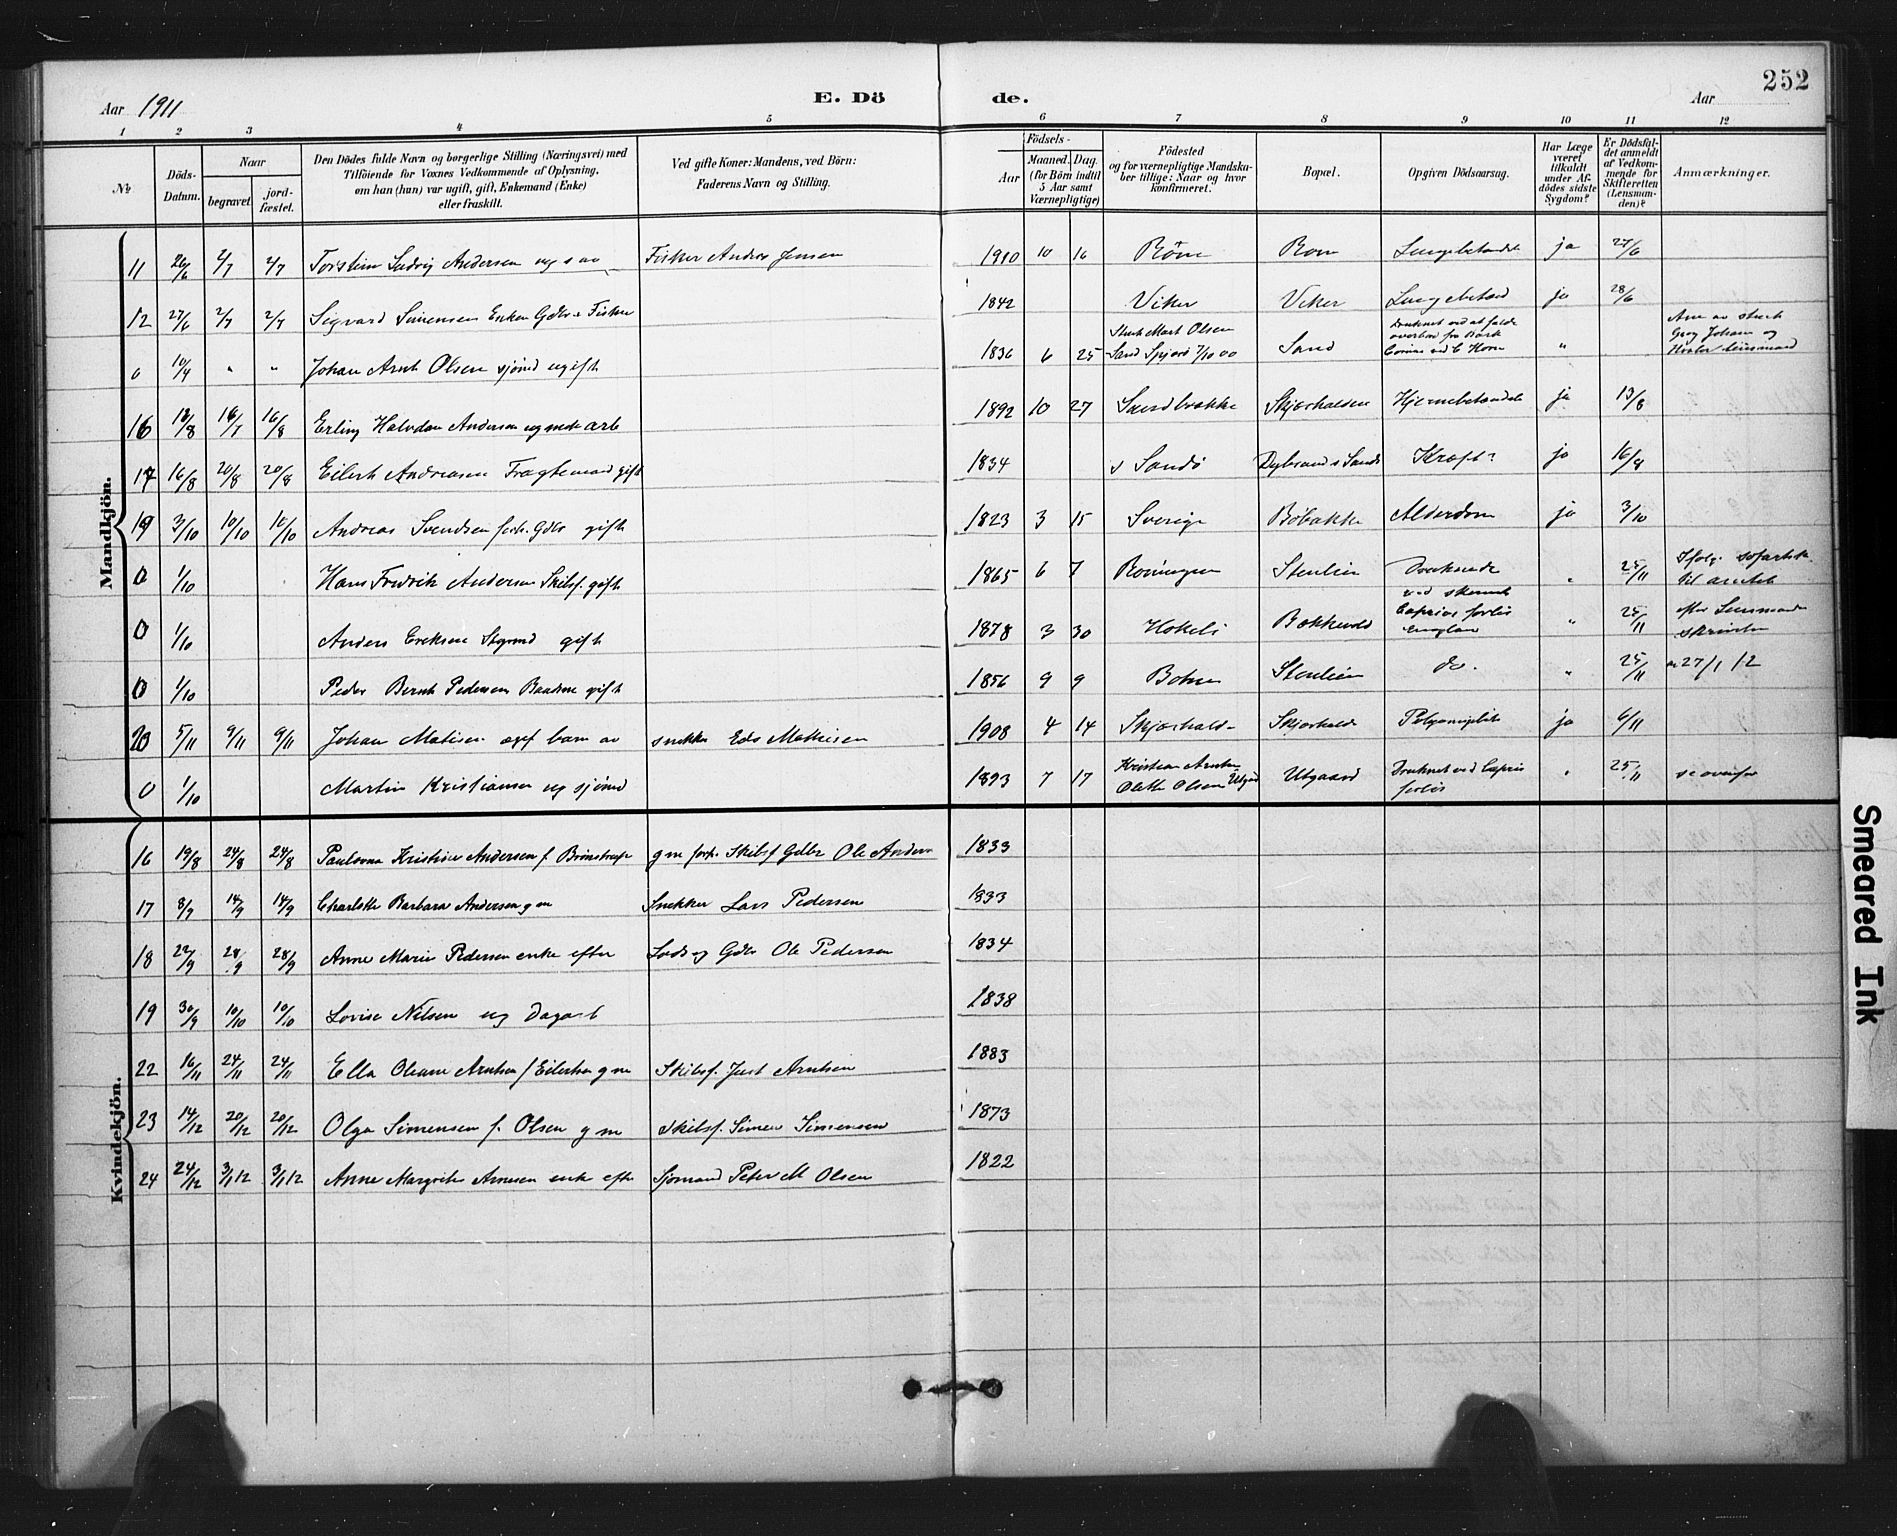 252
Aar 1911 E. Dö de. Aar
1 2 3 4 5 6 7 8 9 10 11 12
№
Döds-Datum.
Naar
begravet
jord-fæstet.
Den Dödes fulde Navn og borgerlige Stilling (Næringsvei) med
Tilföiende for Voxnes Vedkommende af Oplysning,
om han (hun) var ugift, gift, Enkemand (Enke)
eller fraskilt.
Ved gifte Koner: Mandens, ved Börn:
Faderens Navn og Stilling.
Födsels-
Aar
Maaned. Dag.
(for Börn indtil
5 Aar samt
Værnepligtige)
Födested
og for værnepligtige Mandska-
ber tillige: Naar og hvor
konfirmeret.
Bopæl.
Opgiven Dödsaarsag.
Har Læge
været
tilkaldt
under Af-
dödes sidste
Sygdom?
Er Dödsfal-
det anmeldt
af Vedkom-
mende for
Skifteretten
(Lensman-
den)?
Anmærkninger.
Mandkjön.
11 26/6 2/7 2/7 Torstein Ludvig Andersen Fisker Andreas Jensen 1910 10 16 Röm Rom Lungebetændelse ja 27/6
12 27/6 2/7 2/7 Sigvard Simensen Enkem Gdbr & Fisker 1842 Viker Viker Lungebetænd ja 28/6
0 10/4 " " Johan Arnt Olsen sjömd ugift 1836 6 25 Sand Spjærö 7/10 00 Sand "
16 13/8 16/7 16/8 Erling Halvdan Andersen arb 1892 10 27 Sandbrække Skjærhalden Hjernebetændelse ja 13/8
17 16/8 20/8 20/8 Eilert Andreasen Fragtemand gift 1834 s Sandö Kræft? ja 16/8
19 3/10 10/10 10/10 Andreas Svendsen forh. Gdbr gift 1823 3 15 Sverige Bobakke Alderdom ja 3/10
0 1/10 Hans Fredrik Andersen Skibsf. gift 1865 6 7 Roningen Stenlien Druknede " 25/11
ved
0 1/10 Anders Eriksen Styrmd gift 1878 3 30 Bakkevold Caprios forlis " 25/11 efter Lensmandens
0 1/10 Peder Bernt Pedersen Baadsm gift 1856 9 9 Stenlien do. " 25/11 27/1 12
20 5/11 9/11 9/11 Johan Matisen barn av snekker Edv Mathisen 1908 4 14 Skjærhald- Skjærhald ja 6/11
0 1/10 Martin Kristiansen ug sjömd 1893 7 17 Olsen Utgård Utgaard Druknet ved Caprios " 25/11 se ovenfor
forlis
Kvindekjön.
16 19/8 24/8 24/8 Paulovna Kristine Andersen f. Brönstrup g m forh. Skibsf Gdbr Ole Anders 1833
17 8/9 14/9 14/9 Charlotte Barbara Andersen g m Snekker Lars Pedersen 1833
18 22/9 28/9 28/9 Anne Marie Pedersen enke efter Lods og Gdbr Ole Pedersen 1834
19 30/9 10/10 10/10 Lovise Nilsen ug Dagarb 1838
22 16/11 24/11 24/11 Ella Oleane Arntsen f Eilertsen g m Skibsf. Just Arntsen 1883
23 14/12 20/12 20/12 Olga Simensen f. Olsen g m Skibsf. Simen Simensen 1873
24 24/12 3/1 12 3/1 12 Anne Margrete Arnesen enke efter Sjömand Peter M Olsen 1822
Smeared Ink